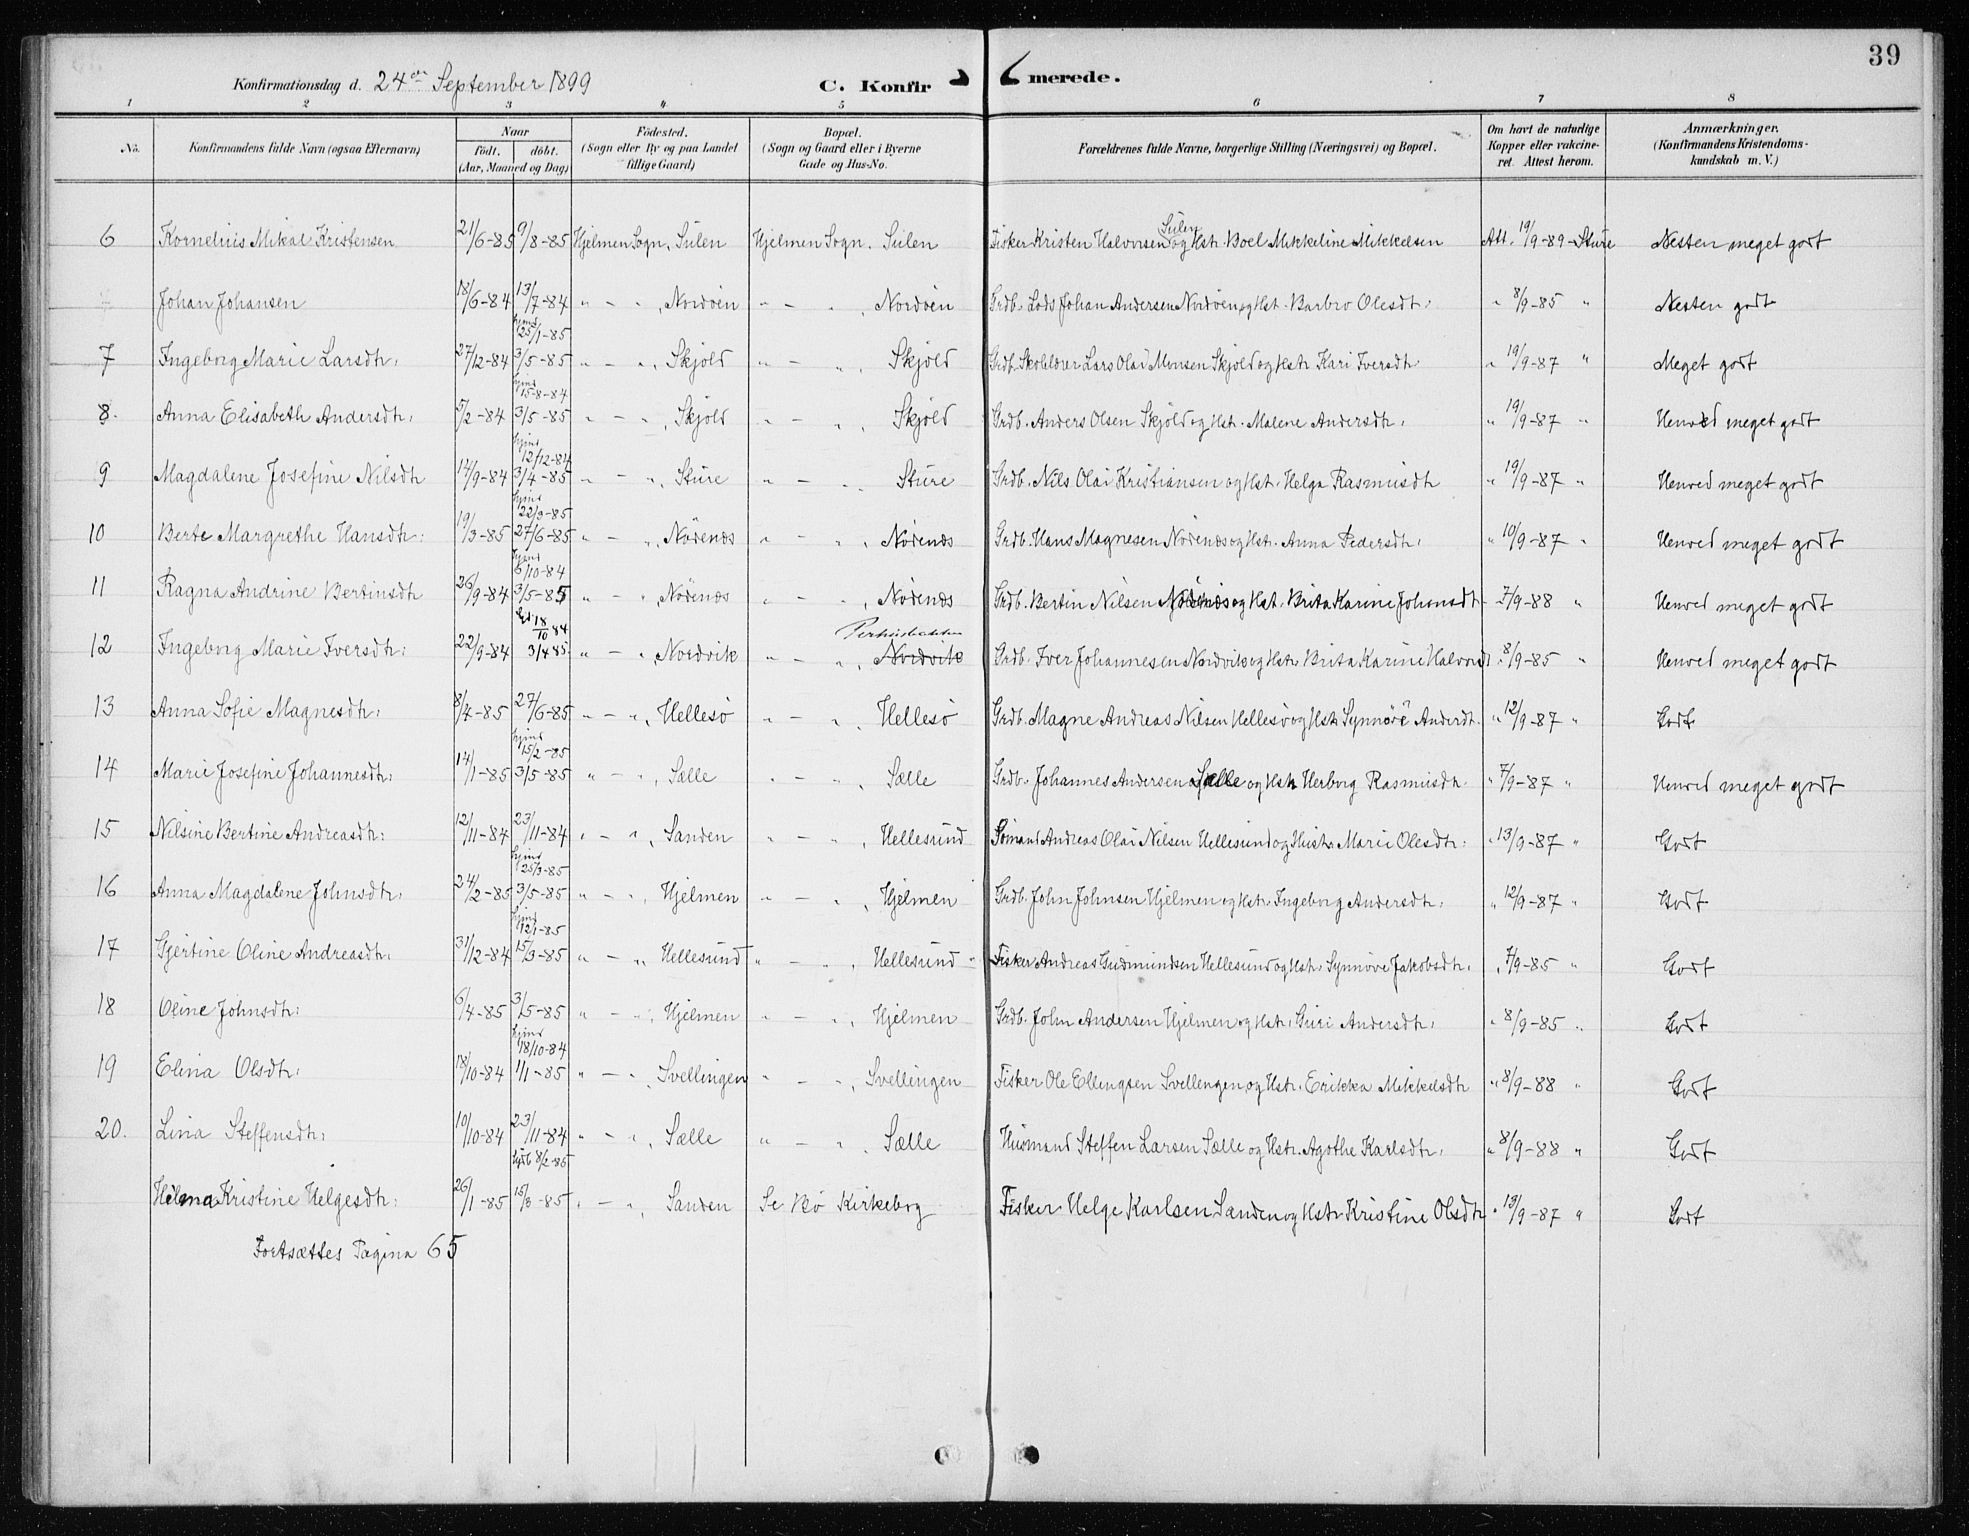 39
Konfirmationsdag d. 24de September 1899 C. Konfirmerede.
1 2 3 4 5 6 7 8
No. Konfirmandens fulde Navn (ogsaa Efternavn) Naar födt. döbt. (Aar, Maaned og Dag) Födested. (Sogn eller By og paa Landet tillige Gaard) Bopæl. (Sogn og Gaard eller i Byerne Gade og Hus-No. Forældrenes fulde Navne, borgerlige Stilling (Næringsvei) og Bopæl. Om havt de naturlige Kopper eller vakcineret. Attest herom. Anmærkninger. (Konfirmandens Kristendomskundskab m. V.)
6 Kornelius Mikal Kristensen 21/6-85 9/8-85 Hjelmen Sogn, Sulen Hjelmen Sogn, Sulen Fisker Kristen Halvorsen Sulen og Hstr. Boel Mikkeline Mikkelsen Att. 19/9-89 Sture Nesten meget godt
Johan Johansen 18/6-84 13/7-84 " - " , Nordöen " - " , Nordöen Grdb. Lods Johan Andersen Nordöen og Hst. Barbro Olesdtr: " 8/9-85 " Nesten godt
hjmd 25/1-85
7 Ingeborg Marie Larsdtr: 27/12-84 3/5-85 " - " , Skjold " - " , Skjold Grdb. Skolelærer Lars Olai Monsen Skjold og Hstr. Kari Iversdtr " 19/9-87 " Meget godt
hjmd 15-8-84
8. Anna Elisabeth Andersdtr: 5/2-84 3/5-85 " - " , Skjold " - " , Skjold Grdb. Anders Olsen Skjold og Hstr. Malene Andersdtr: " 19/9-87 " Henved meget godt
hjmd 12/12-84
9 Magdalene Josefine Nilsdtr 14/9-84 3/4-85 " - " , Sture " - " , Sture Grdb. Nils Olai Kristiansen og Hst. Helga Rasmusdtr " 19/9-87 " Henved meget godt
hjmd 22/3-85
10 Berte Margrethe Hansdtr: 19/3-85 27/6-85 " - " , Nörenæs " - " , Nörenæs Grdb. Hans Magnesen Nörenæs og Hstr. Anna Pedersdtr: " 10/9-87 " Henved meget godt
hjmd 6/10-84
11 Ragna Andrine Bertinsdtr 26/9-84 3/5-85 " - " , Nörenæs " - " , Nörenæs Grdb. Bertin Nilsen Nörenæs og Hst. Brita Karine Johansdtr 7/9-88 " Henved meget godt
18/10 84
12 Ingeborg Marie Iversdtr: 22/9-84 3/4 85 " - " , Nordvik " - " , Nordvik Grdb. Iver Johannesen Nordvik og Hstr Brita Karine Halvorsdtr 8/9-85 " Henved meget godt
13 Anna Sofie Magnesdtr: 8/4-85 27/6-85 " - " , Hellesö " - " , Hellesö Grdb. Magne Andreas Nilsen Hellesö og Hstr Synnöve Anderdtr. " 12/9-87 " Godt
hjmd 15/2-85
14 Marie Josefine Johannesdtr: 14/1-85 3/5-85 " - " , Sælle " - " , Sælle Grdb. Johannes Andersen Sælle og Hstr Herborg Rasmusdtr " 7/9-87 " Henved meget godt
15 Nilsine Bertine Andreasdtr: 12/11-84 23/11-84 " - " , Sanden " - " , Hellesund Sömand Andreas Olai Nilsen Hellesund og Hustr Marie Olesdtr: " 13/9-87 " Godt
hjmd 25/3-85
16 Anna Magdalene Johnsdtr: 24/2-85 3/5-85 " - " , Hjelmen " - " , Hjelmen Grdb. John Johnsen Hjelmen og Hstr. Ingeborg Andersdtr: " 12/9-87 " Godt
hjmd 12/1-85
17 Gjertine Oline Andreasdtr: 31/12-84 15/3-85 " - " , Hellesund " - " , Hellesund Fisker Andreas Gudmundsen Hellesund og Hstr. Synnöve Jakobsdtr: " 7/9-85 " Godt
18 Oline Johnsdtr: 6/4-85 3/5-85 " - " , Hjelmen " - " , Hjelmen Grdb. John Andersen Hjelmen og Hstr: Guri Andersdtr: " 8/9-85 " Godt
hjmd 18/10-84
19 Elina Olsdtr: 18/10-84 1/1-85 " - " , Svellingen " - " , Svellingen Fisker Ole Ellingsen Svellengen og Hstr. Erikka Mikkelsdtr " 8/9-88 " Godt
20. Lina Steffensdtr: 10/10-84 23/11-84 " - " , Sælle " - " , Sælle Husmand Steffen Larsen Sælle og Hstr. Agothe Karlsdtr: " 8/9-88 " Godt
8/2-85
Helma Kristine Helgesdtr: 26/1-85 15/3-85 " - " , Sanden Se Bö Kirkebog Fisker Helge Karlsen Sanden og Hstr Kristine Olsdtr " 13/9-87 " Godt
Fortsættes Pagina 65